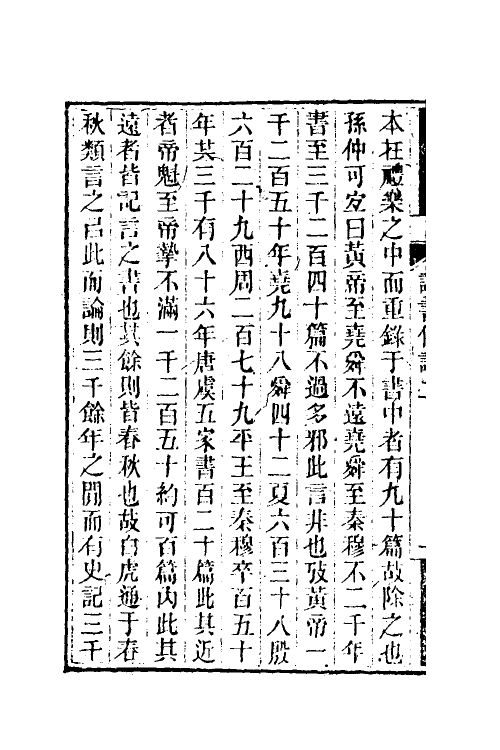 本在禮樂之中而重錄于書中者有九十篇故除之也
孫仲可㝎曰黃帝至堯舜不遠堯舜至秦穆不二千年
書至三千二百四十篇不過多邪此言非也攷黃帝一
千二百五十年堯九十八舜四十二夏六百三十八殷
六百二十九西周二百七十九平王至秦穆卒百五十
年其三千有八十六年唐虞五家書百二十篇此其近
者帝魁至帝摯不滿一千二百五十約可百篇內此其
遠者皆記言之書也其餘則皆春秋也故白虎通于春
秋類言之㠯此而論則三千餘年之閒而有史記三千